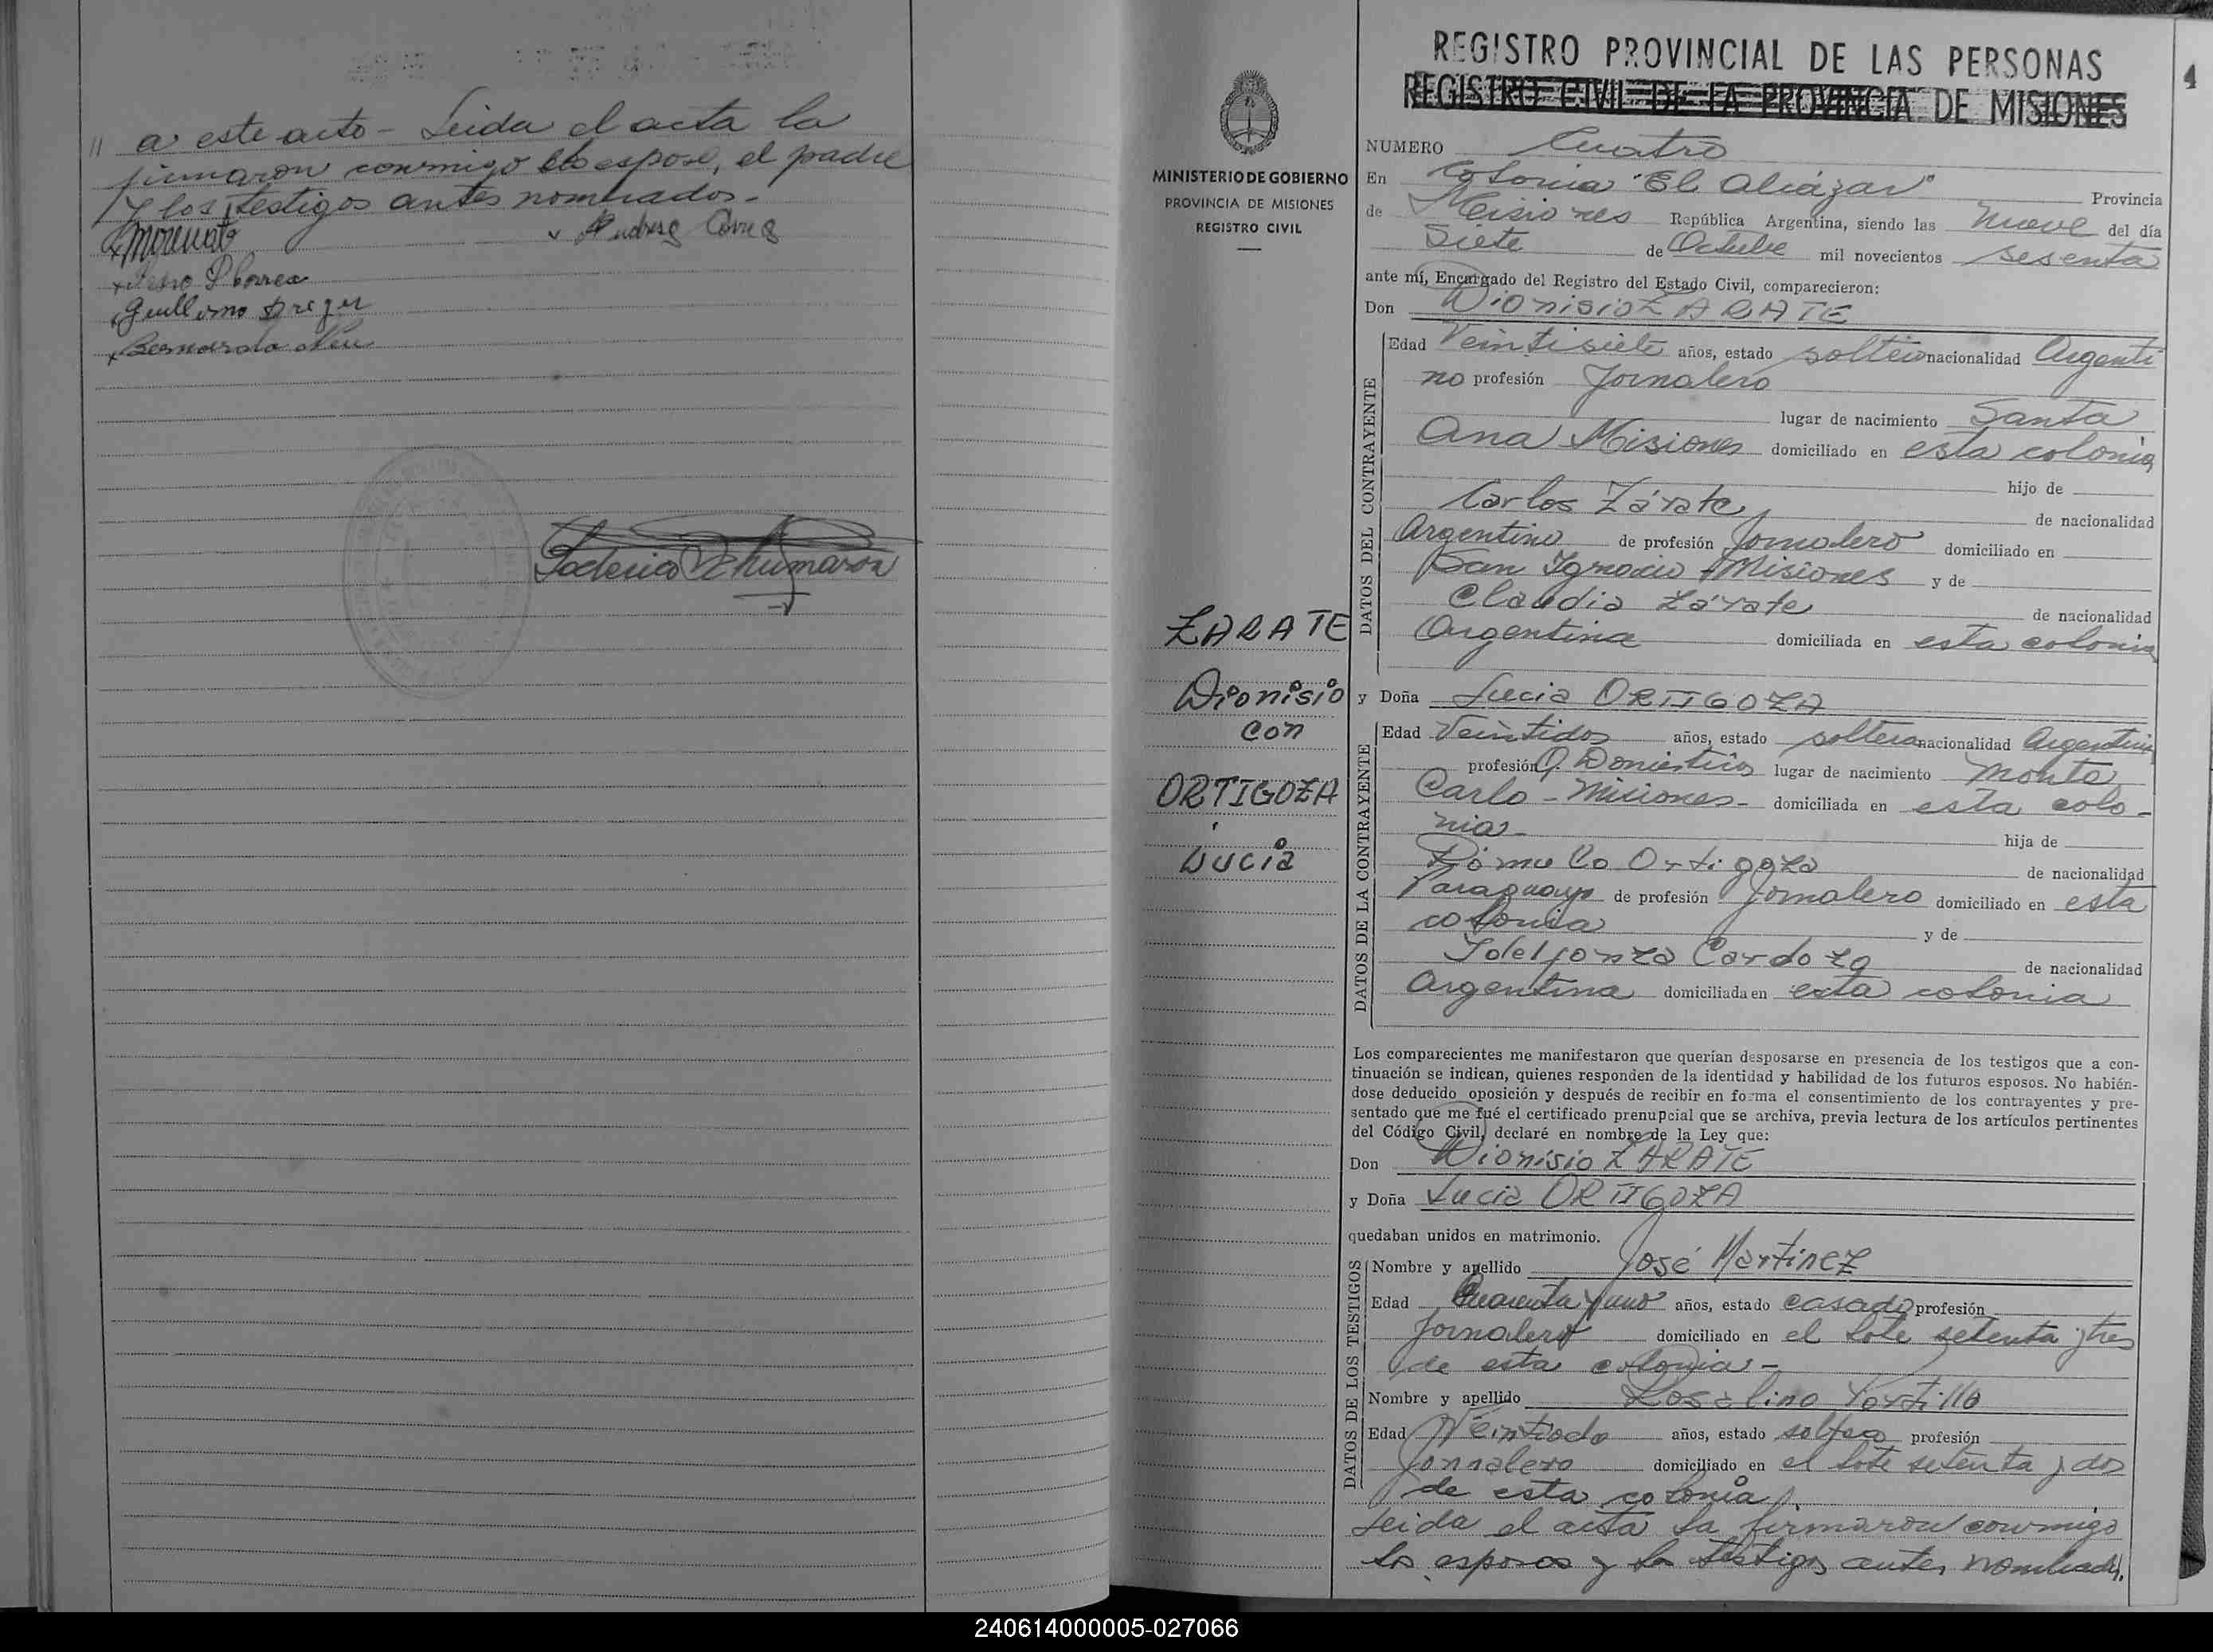 " a este acto - Leida el acta la
firmaron conmigo los esposos, el padre
y los testigos antes nombrados -
Guillermo Dreger
REGISTRO PROVINCIAL DE LAS PERSONAS
4
REGISTRO CIVIL DE LA PROVINCIA DE MISIONES
MINISTERIO DE GOBIERNO
PROVINCIA DE MISIONES
REGISTRO CIVIL
ZARATE
Dionisio
con
ORTIGOZA
Lucia
NUMERO Cuatro
En Colonia "El Alcázar" Provincia
de Misiones República Argentina, siendo las nueve del día
Siete de Octubre mil novecientos sesenta
ante mí, Encargado del Registro del Estado Civil, comparecieron:
Don Dionisio ZARATE
DATOS DEL CONTRAYENTE
Edad Veintisiete años, estado soltero nacionalidad Argenti
no profesión Jornalero
lugar de nacimiento Santa
Ana Misiones domiciliado en esta colonia
hijo de
Carlos Zárate, de nacionalidad
Argentino de profesión Jornalero domiciliado en
San Ignacio Misiones y de
Claudia Zárate de nacionalidad
Argentina domiciliada en esta colonia
y Doña Lucia ORTIGOZA
DATOS DE LA CONTRAYENTE
Edad Veintidos años, estado soltera nacionalidad Argentina
profesión Q. Domésticos lugar de nacimiento Monte
Carlo - Misiones - domiciliada en esta colo-
nia - hija de
Rómulo Ortigoza de nacionalidad
Paraguayo de profesión Jornalero domiciliado en esta
colonia y de
Idelfonza Cardozo de nacionalidad
Argentina domiciliada en esta colonia
Los comparecientes me manifestaron que querían desposarse en presencia de los testigos que a con-
tinuación se indican, quienes responden de la identidad y habilidad de los futuros esposos. No habién-
dose deducido oposición y después de recibir en forma el consentimiento de los contrayentes y pre-
sentado que me fué el certificado prenupcial que se archiva, previa lectura de los artículos pertinentes
del Código Civil, declaré en nombre de la Ley que:
Don Dionisio ZARATE
y Doña Lucia ORTIGOZA
quedaban unidos en matrimonio.
DATOS DE LOS TESTIGOS
Nombre y apellido José Martinez
Edad Cuarenta y uno años, estado casado profesión
Jornalero domiciliado en el lote setenta y tres
de esta colonia -
Nombre y apellido Rosalino Portillo
Edad Veintiocho años, estado soltero profesión
Jornalero domiciliado en el lote setenta y dos
de esta colonia.
Leida el acta la firmaron conmigo
los esposos y los testigos antes nombrados.
240614000005-027066